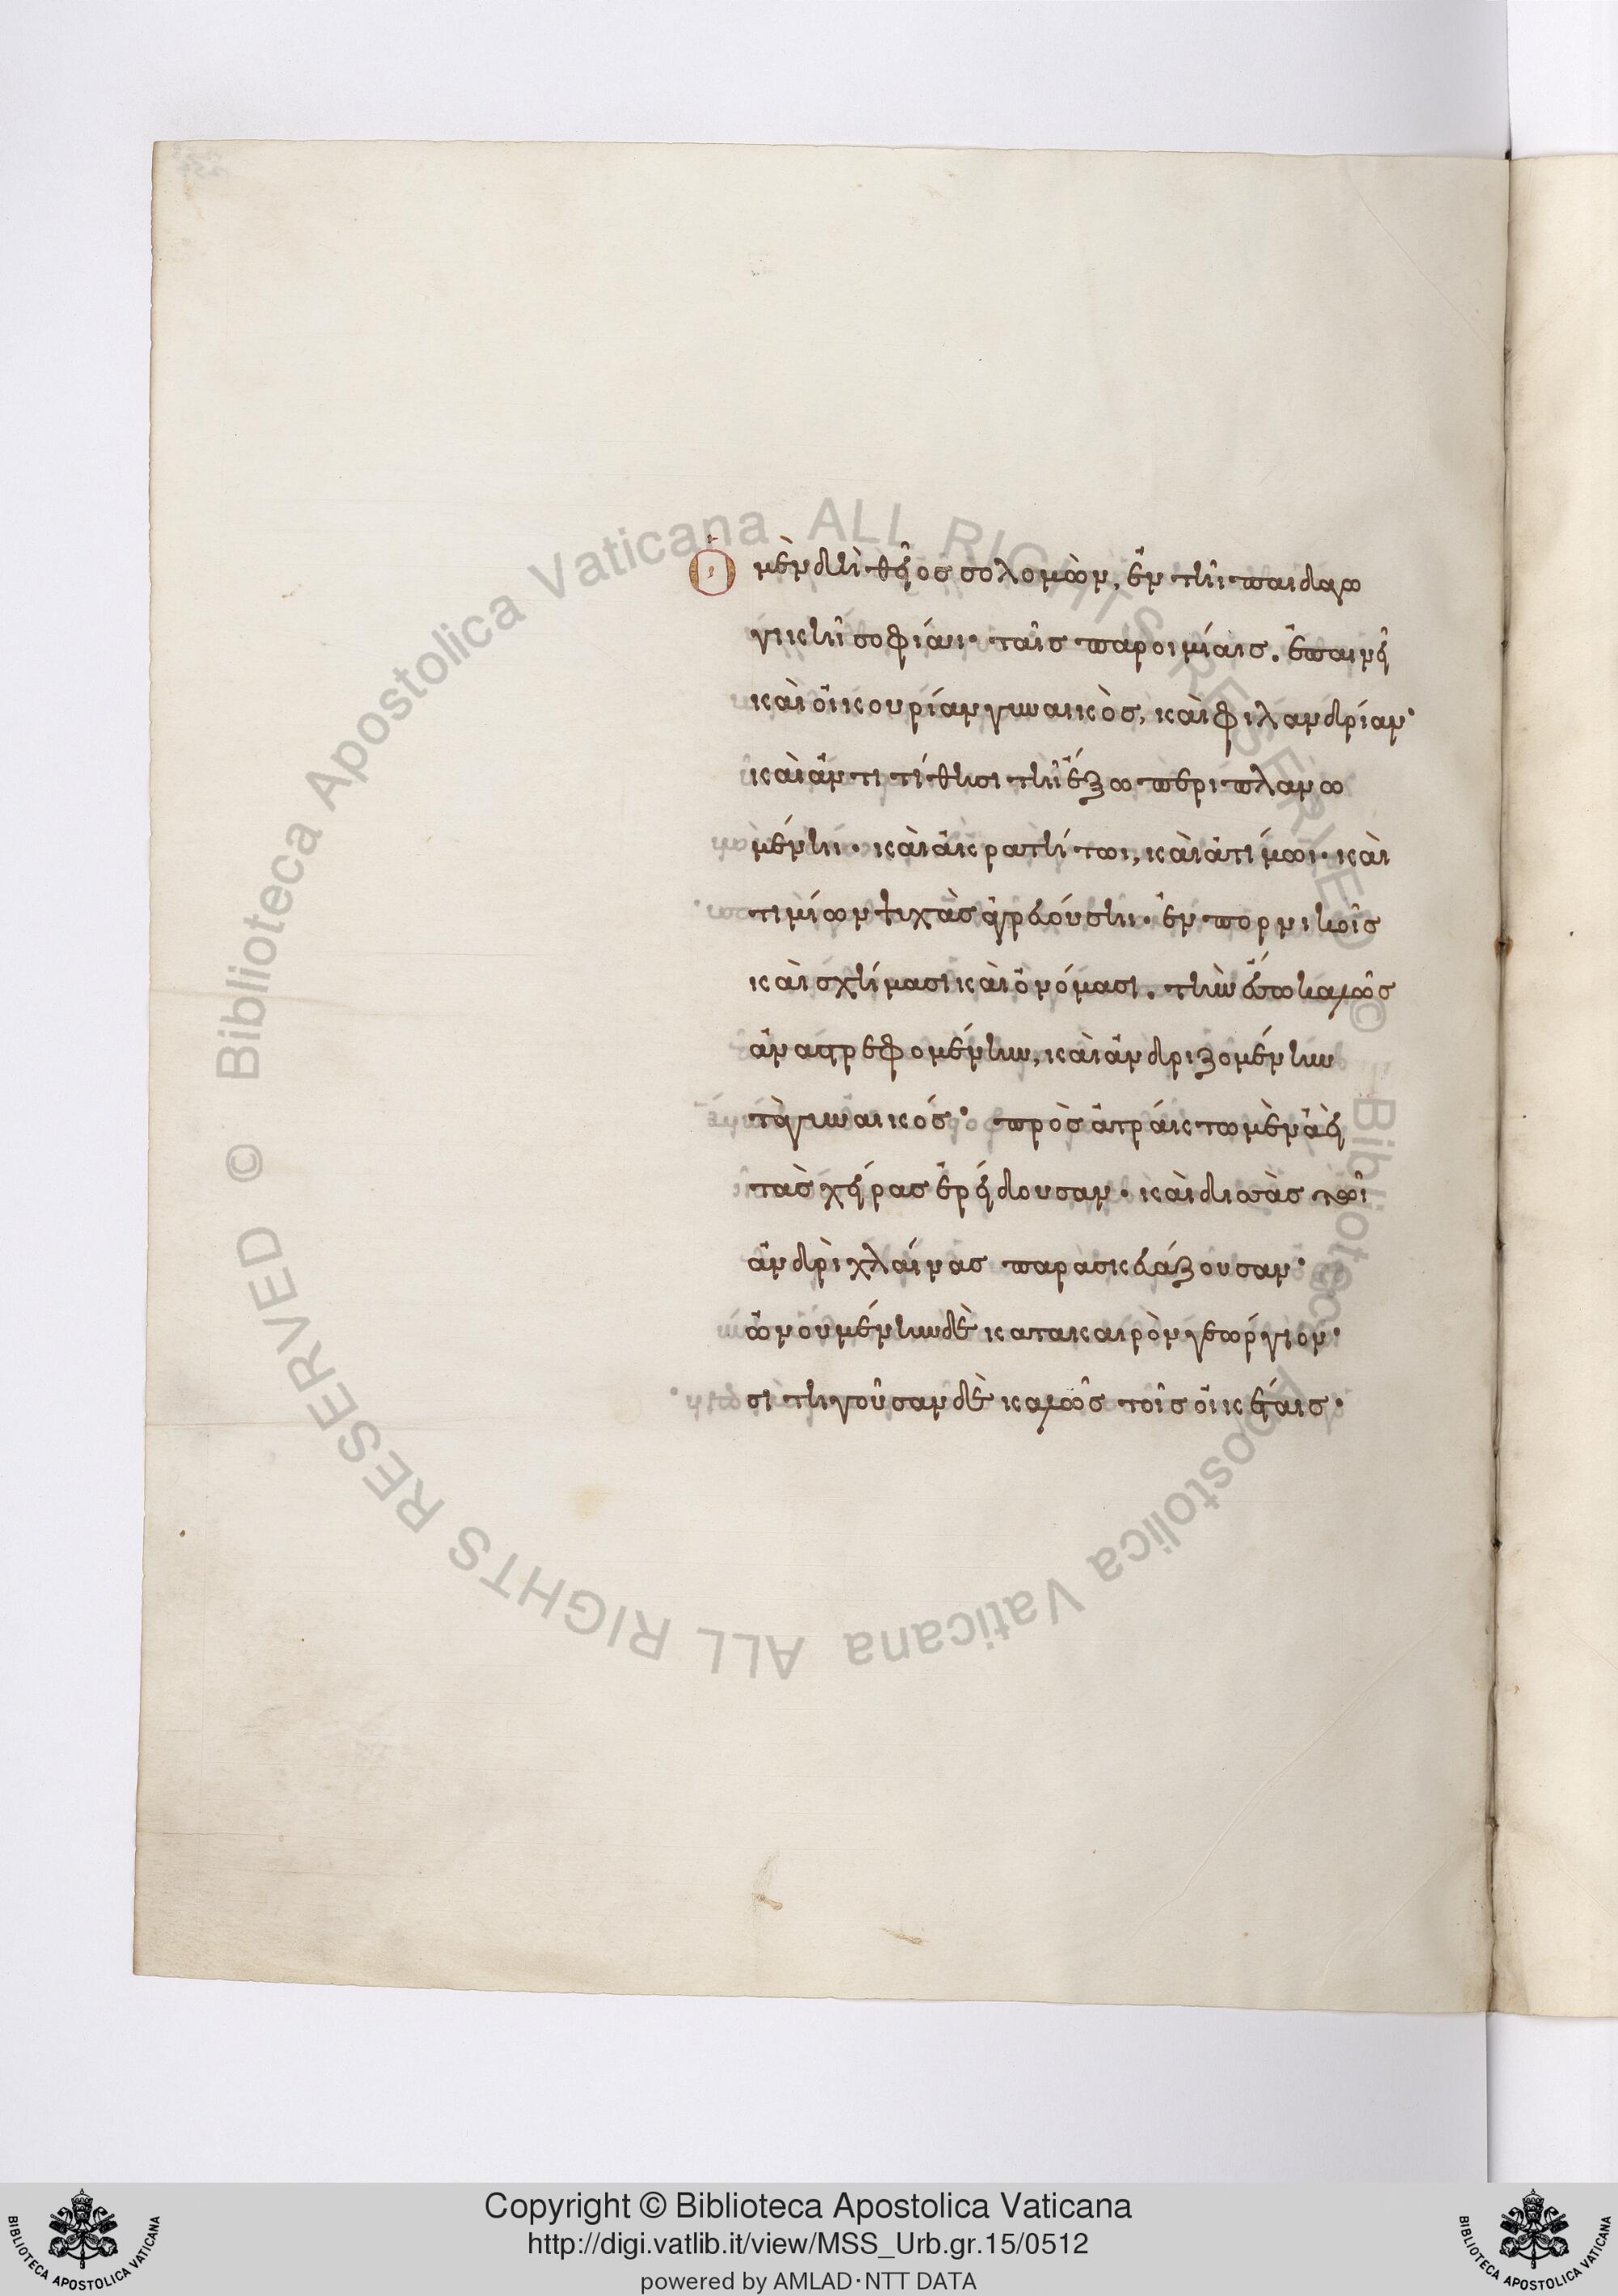 Ὁ μὲν δὴ θεῖος σολομῶν, ἐν τῆι παιδαγω
γικῆι σοφίαι· ταῖς παροιμίαις. ἐπαινεῖ
καὶ οἰκουρίαν γυναικὸς, καὶ φιλανδρίαν·
καὶ ἀντιτίθησι τῆι ἔξω περιπλανω
μένηι· καὶ ἀκρατήτωι, καὶ ἀτίμωι· καὶ
τιμίων ψυχὰς ἀγρευούσηι· ἐν πορνικοῖς
καὶ σχήμασι καὶ ὀνόμασι. τὴν εἴσω καλῶς
ἀναστρεφομένην, καὶ ἀνδριζομένην
τὰ γυναικός· πρὸς ἄτρακτω μὲν ἀεὶ
τὰς χεῖρας ἐρείδουσαν· καὶ δισσὰς τῶι
ἀνδρὶ χλαίνας παρασκευάζουσαν·
ὠνουμένην δὲ κατακαιρὸν γεώργιον·
σιτηγοῦσαν δὲ καλῶς τοῖς οἰκέταις·
Biblioteca Apostolica Vaticana ALL RIGHTS RESERVED ©
Biblioteca Apostolica Vaticana ALL RIGHTS RESERVED ©
Copyright © Biblioteca Apostolica Vaticana
http://digi.vatlib.it/view/MSS_Urb.gr.15/0512
powered by AMLAD·NTT DATA
BIBLIOTECA APOSTOLICA VATICANA
BIBLIOTECA APOSTOLICA VATICANA